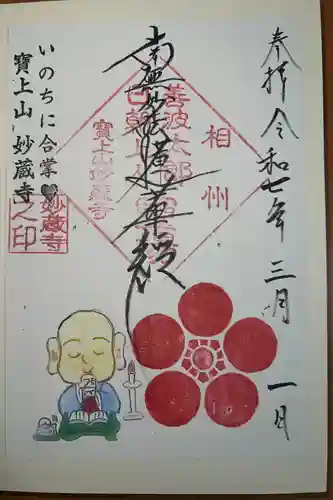 奉拝 令和七年 三月 一日
相州
南無妙法蓮華経
寶上山妙蔵寺
いのちに合掌♥
寶上山 妙蔵寺
妙蔵寺之印